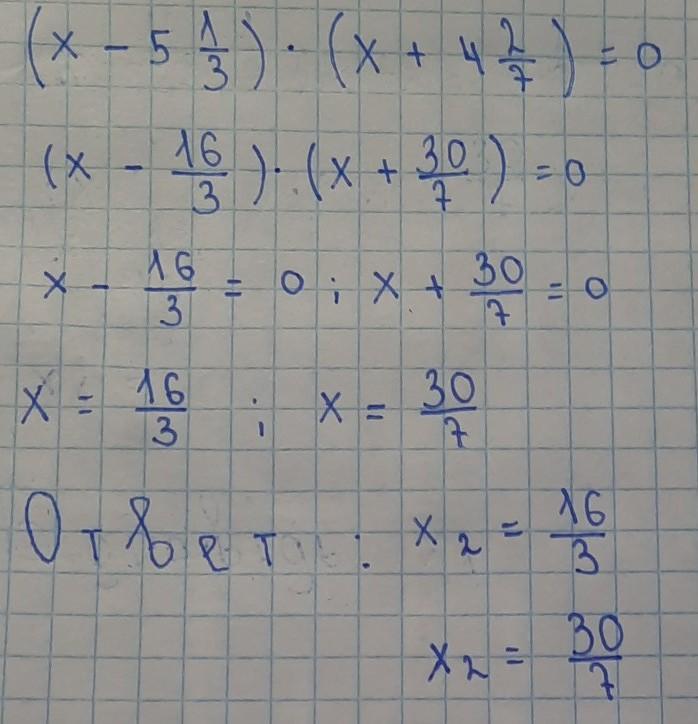 (x - 5 1/3) · (x + 4 2/7) = 0
(x - 16/3) · (x + 30/7) = 0
x - 16/3 = 0 ; x + 30/7 = 0
x = 16/3 ; x = 30/7
Ответ : x₂ = 16/3
x₂ = 30/7